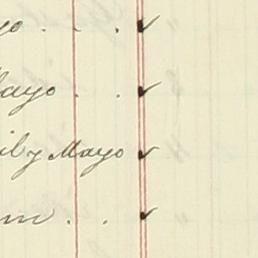 yo . . . ✓
layo . . ✓
ily Mayo ✓
m . . ✓